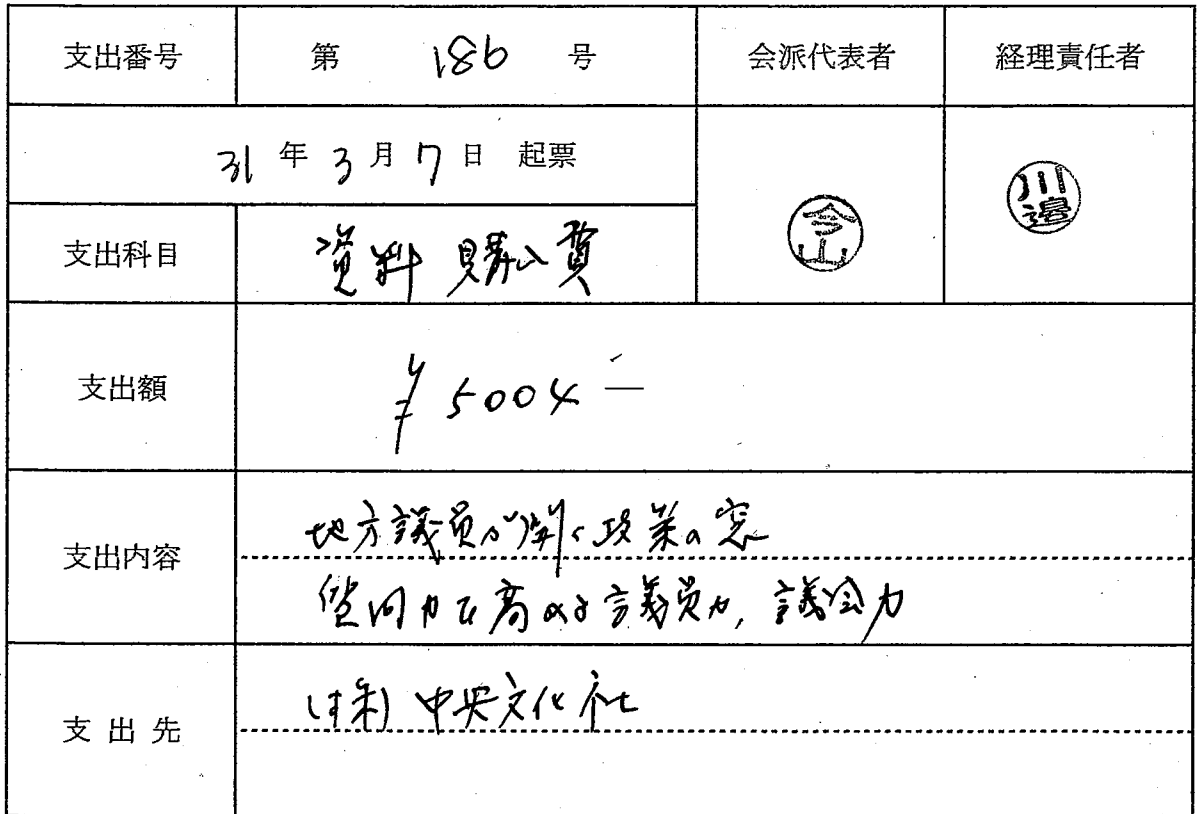 支出番号 第 186 号 会派代表者 経理責任者
31 年 3 月 7 日 起票
今山
川邉
支出科目 資料購入費
支出額 ¥5004―
支出内容 地方議員が開く政策の窓
質問力で高める議員力,議会力
支出先 (株)中央文化社